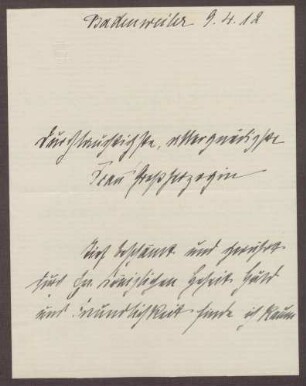 Badenweiler 9.4.18
Durchlauchtigste, allergnädigste
Frau Großherzogin
Tief beschämt und gerührt
durch Ew. Königlichen Hoheit Huld
und Freundlichkeit finde ich kaum